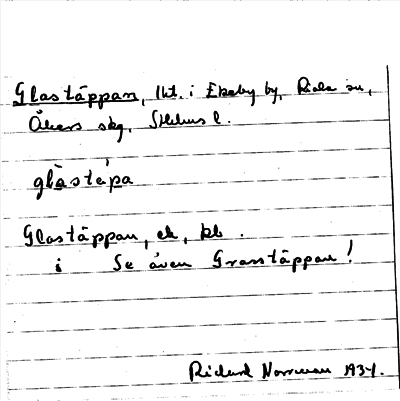 Glastäppan, lht. i Ekeby by, Riala sn,
Åkers skg, Sthlms l.
glàstep̀a
Glastäppan, ek, kb.
i Se även Grasstäppan!
Richard Norrman 1934.